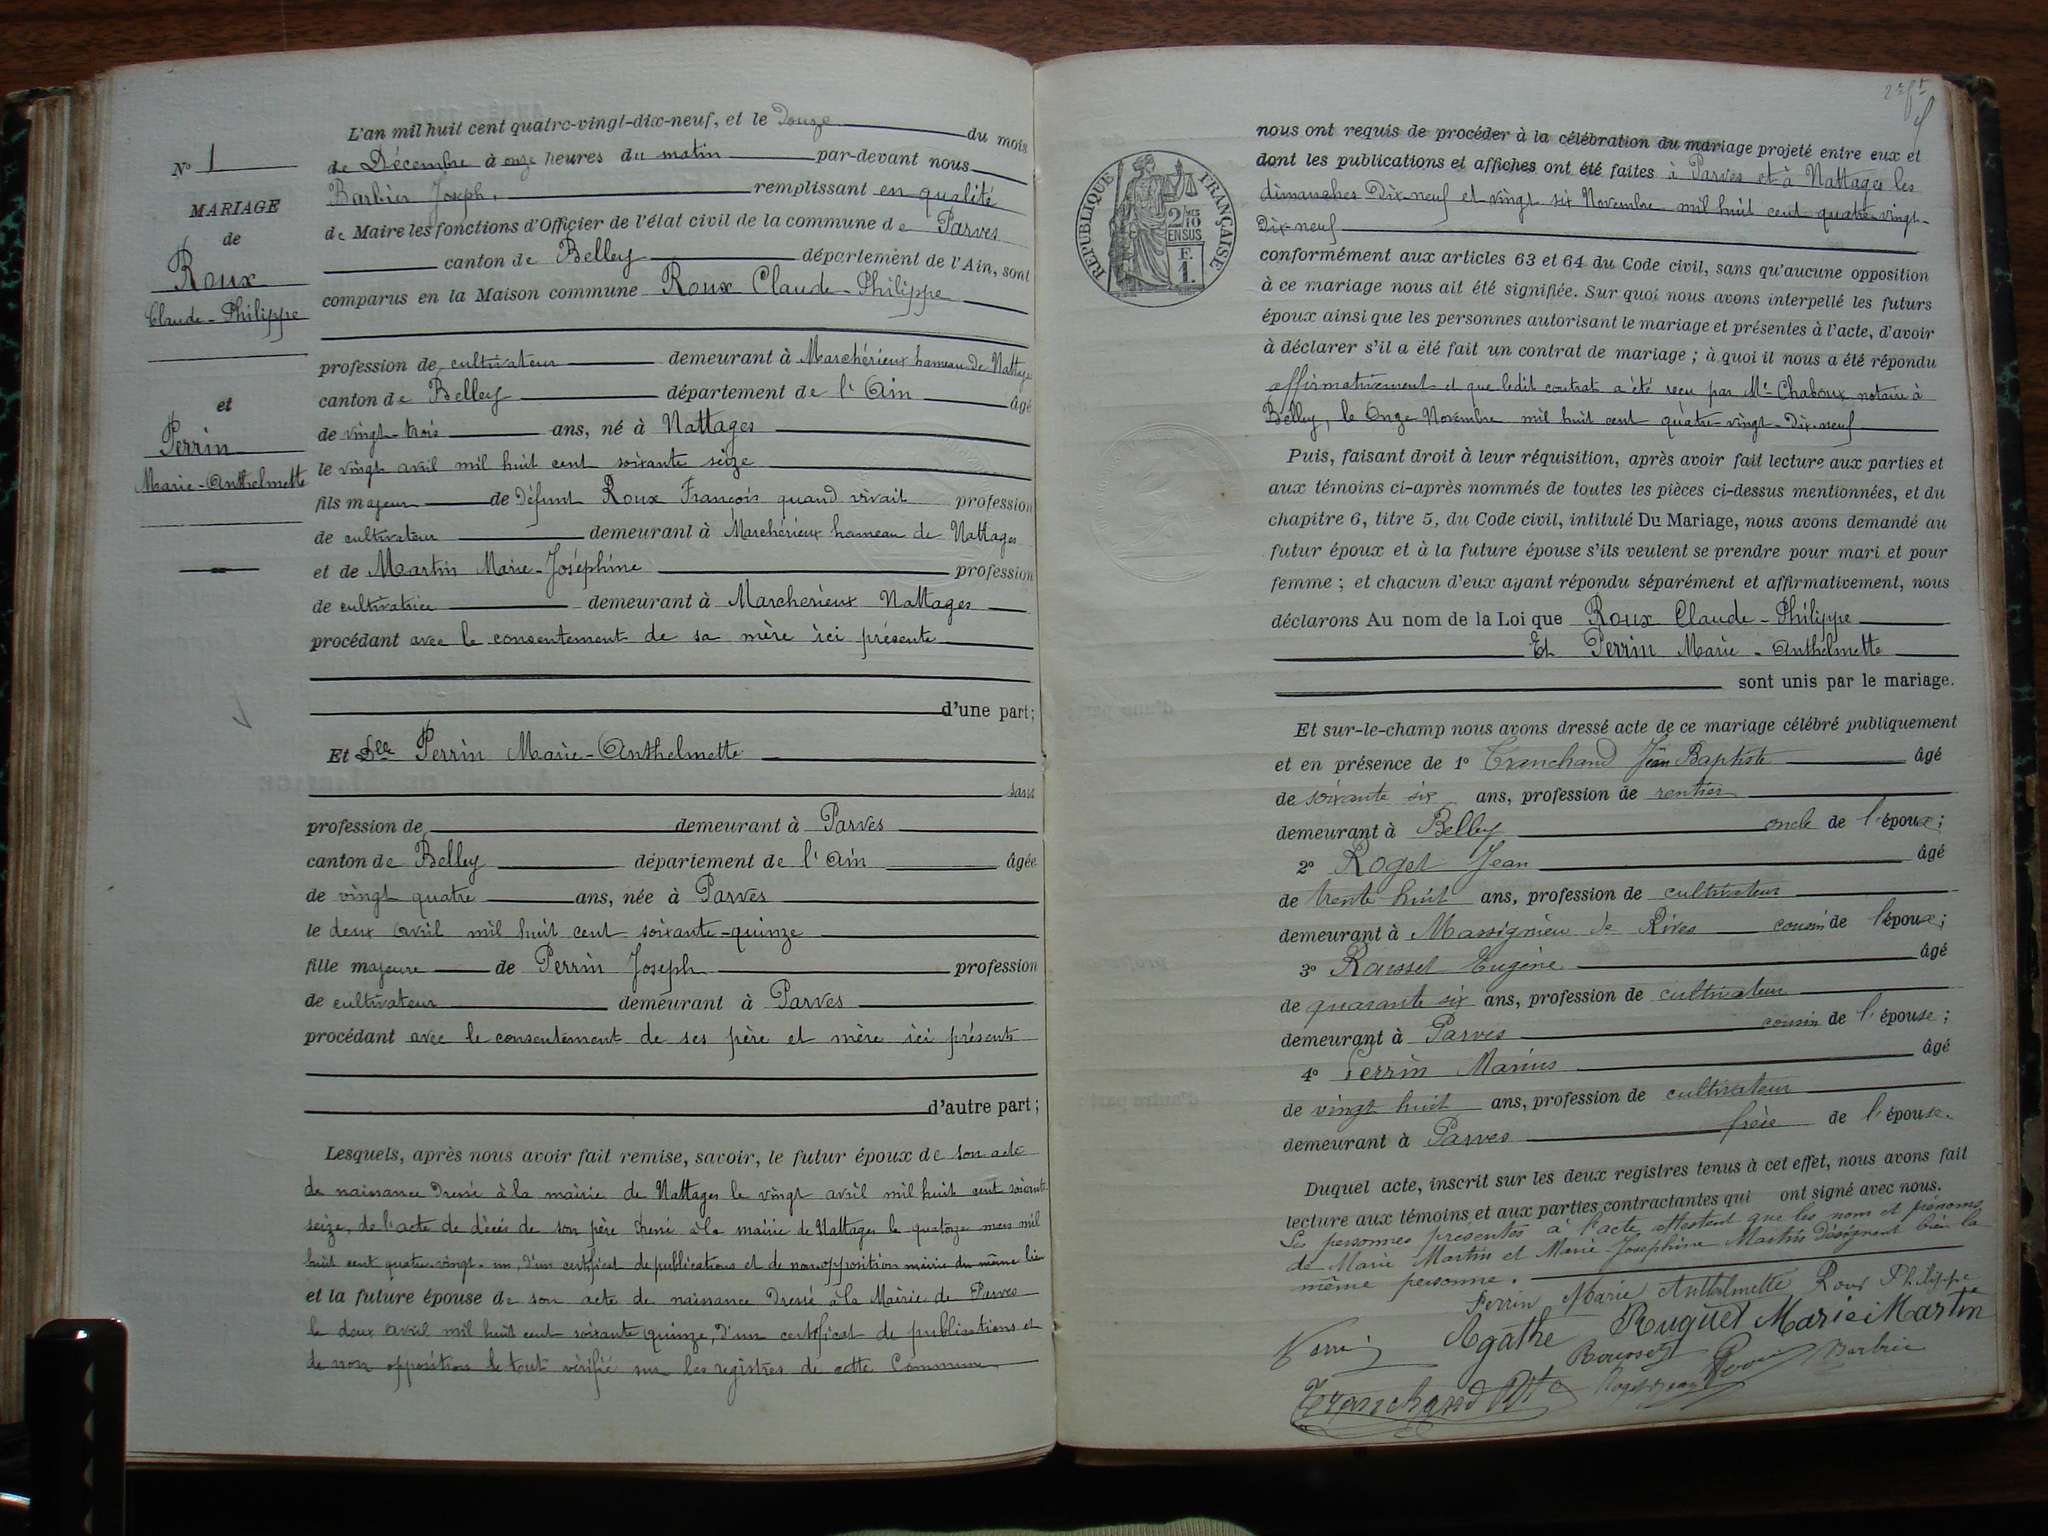 L'an mil huit cent quatre-vingt-dix-neuf, et le Douze du mois
de Décembre à onze heures du matin par-devant nous
Barbier Joseph, remplissant en qualité
de Maire les fonctions d'Officier de l'état civil de la commune de Parves
canton de Belley département de l'Ain, sont
comparus en la Maison commune Roux Claude-Philippe
profession de cultivateur demeurant à Marchérieux hameau de Nattages
canton de Belley département de l'Ain âgé
de vingt-trois ans, né à Nattages
le vingt avril mil huit cent soixante seize
fils majeur de défunt Roux François quand vivait profession
de cultivateur demeurant à Marchérieux hameau de Nattages
et de Martin Marie-Joséphine profession
de cultivatrice demeurant à Marcherieux Nattages
procédant avec le consentement de sa mère ici présente
d'une part;
Et Dlle Perrin Marie-Anthelmette
sans
profession de demeurant à Parves
canton de Belley département de l'Ain âgée
de vingt quatre ans, née à Parves
le deux avril mil huit cent soixante-quinze
fille majeure de Perrin Joseph profession
de cultivateur demeurant à Parves
procédant avec le consentement de ses père et mère ici présents
d'autre part;
Lesquels, après nous avoir fait remise, savoir, le futur époux de son acte
de naissance dressé à la mairie de Nattages le vingt avril mil huit cent soixante
seize, de l'acte de décès de son père dressé à la mairie de Nattages le quatorze mars mil
huit cent quatre-vingt-un, d'un certificat de publications et de non opposition mairie du même lieu
et la future épouse de son acte de naissance dressé à la Mairie de Parves
le deux avril mil huit cent soixante quinze, d'un certificat de publications et
de non opposition le tout vérifié sur les registres de cette Commune
N° 1
MARIAGE
de
Roux
Claude-Philippe
et
Perrin
Marie-Anthelmette
nous ont requis de procéder à la célébration du mariage projeté entre eux et
dont les publications et affiches ont été faites à Parves et à Nattages les
dimanches Dix-neuf et vingt six Novembre mil huit cent quatre-vingt-
Dix-neuf
conformément aux articles 63 et 64 du Code civil, sans qu'aucune opposition
à ce mariage nous ait été signifiée. Sur quoi nous avons interpellé les futurs
époux ainsi que les personnes autorisant le mariage et présentes à l'acte, d'avoir
à déclarer s'il a été fait un contrat de mariage; à quoi il nous a été répondu
affirmativement et que ledit contrat a été reçu par Me Chaboux notaire à
Belley, le Onze Novembre mil huit cent quatre-vingt-Dix-neuf
Puis, faisant droit à leur réquisition, après avoir fait lecture aux parties et
aux témoins ci-après nommés de toutes les pièces ci-dessus mentionnées, et du
chapitre 6, titre 5, du Code civil, intitulé Du Mariage, nous avons demandé au
futur époux et à la future épouse s'ils veulent se prendre pour mari et pour
femme; et chacun d'eux ayant répondu séparément et affirmativement, nous
déclarons Au nom de la Loi que Roux Claude-Philippe
Et Perrin Marie-Anthelmette
sont unis par le mariage.
Et sur-le-champ nous avons dressé acte de ce mariage célébré publiquement
et en présence de 1° Tranchand Jean Baptiste âgé
de soixante six ans, profession de rentier
demeurant à Belley oncle de l'époux;
2° Roget Jean âgé
de trente huit ans, profession de cultivateur
demeurant à Massignieu de Rives cousin de l'époux;
3° Rousset Eugène âgé
de quarante six ans, profession de cultivateur
demeurant à Parves cousin de l'épouse;
4° Perrin Marius âgé
de vingt huit ans, profession de cultivateur
demeurant à Parves frère de l'épouse.
Duquel acte, inscrit sur les deux registres tenus à cet effet, nous avons fait
lecture aux témoins et aux parties contractantes qui ont signé avec nous.
Les personnes présentes à l'acte attestent que les nom et prénoms
de Marie Martin et Marie Joséphine Martin désignent bien la
même personne.
Perrin Marie Anthelmette Roux Philippe
Perrin Agathe Ruguet Marie Martin
Rousset Barbier
Tranchand Bte Roget Jean
RÉPUBLIQUE FRANÇAISE
2/10
EN SUS
F.
1.